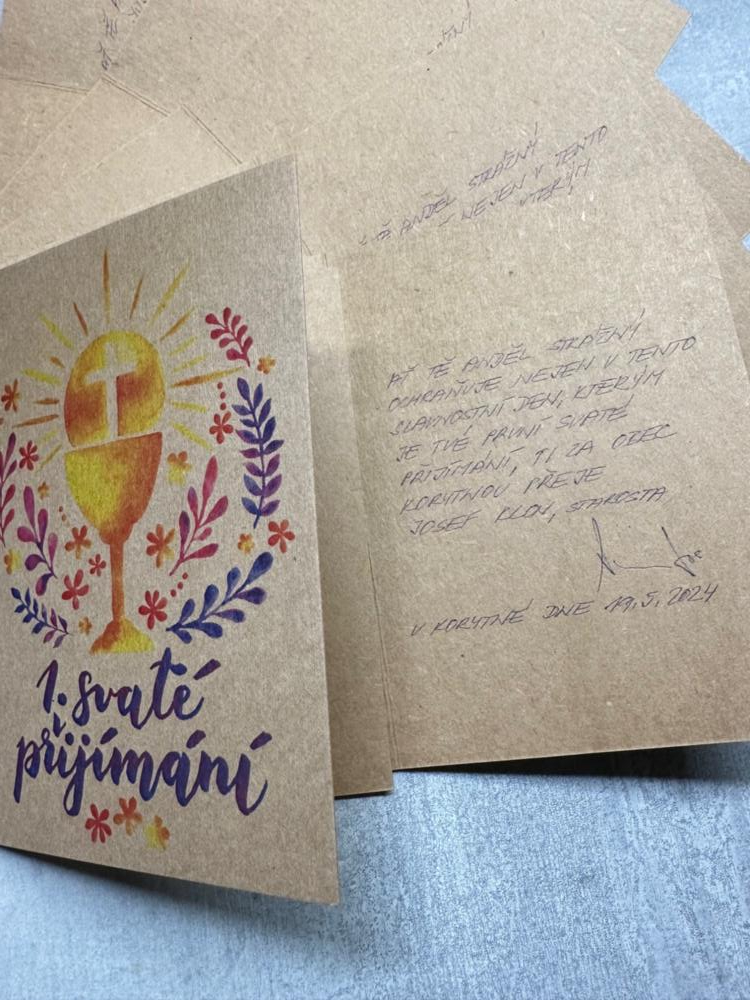 AŤ TĚ ANDĚL STRAŽNÝ
- NEJEN V TENTO
KTERÝM
AŤ TĚ ANDĚL STRAŽNÝ
OCHRAŇUJE NEJEN V TENTO
SLAVNOSTNÍ DEN, KTERÝM
JE TVÉ PRVNÍ SVATÉ
PŘIJÍMÁNÍ, TI ZA OBEC
KORYTNOU PŘEJE
JOSEF KLON, STAROSTA
V KORYTNÉ DNE 19.5.2024
1. svaté
přijímání